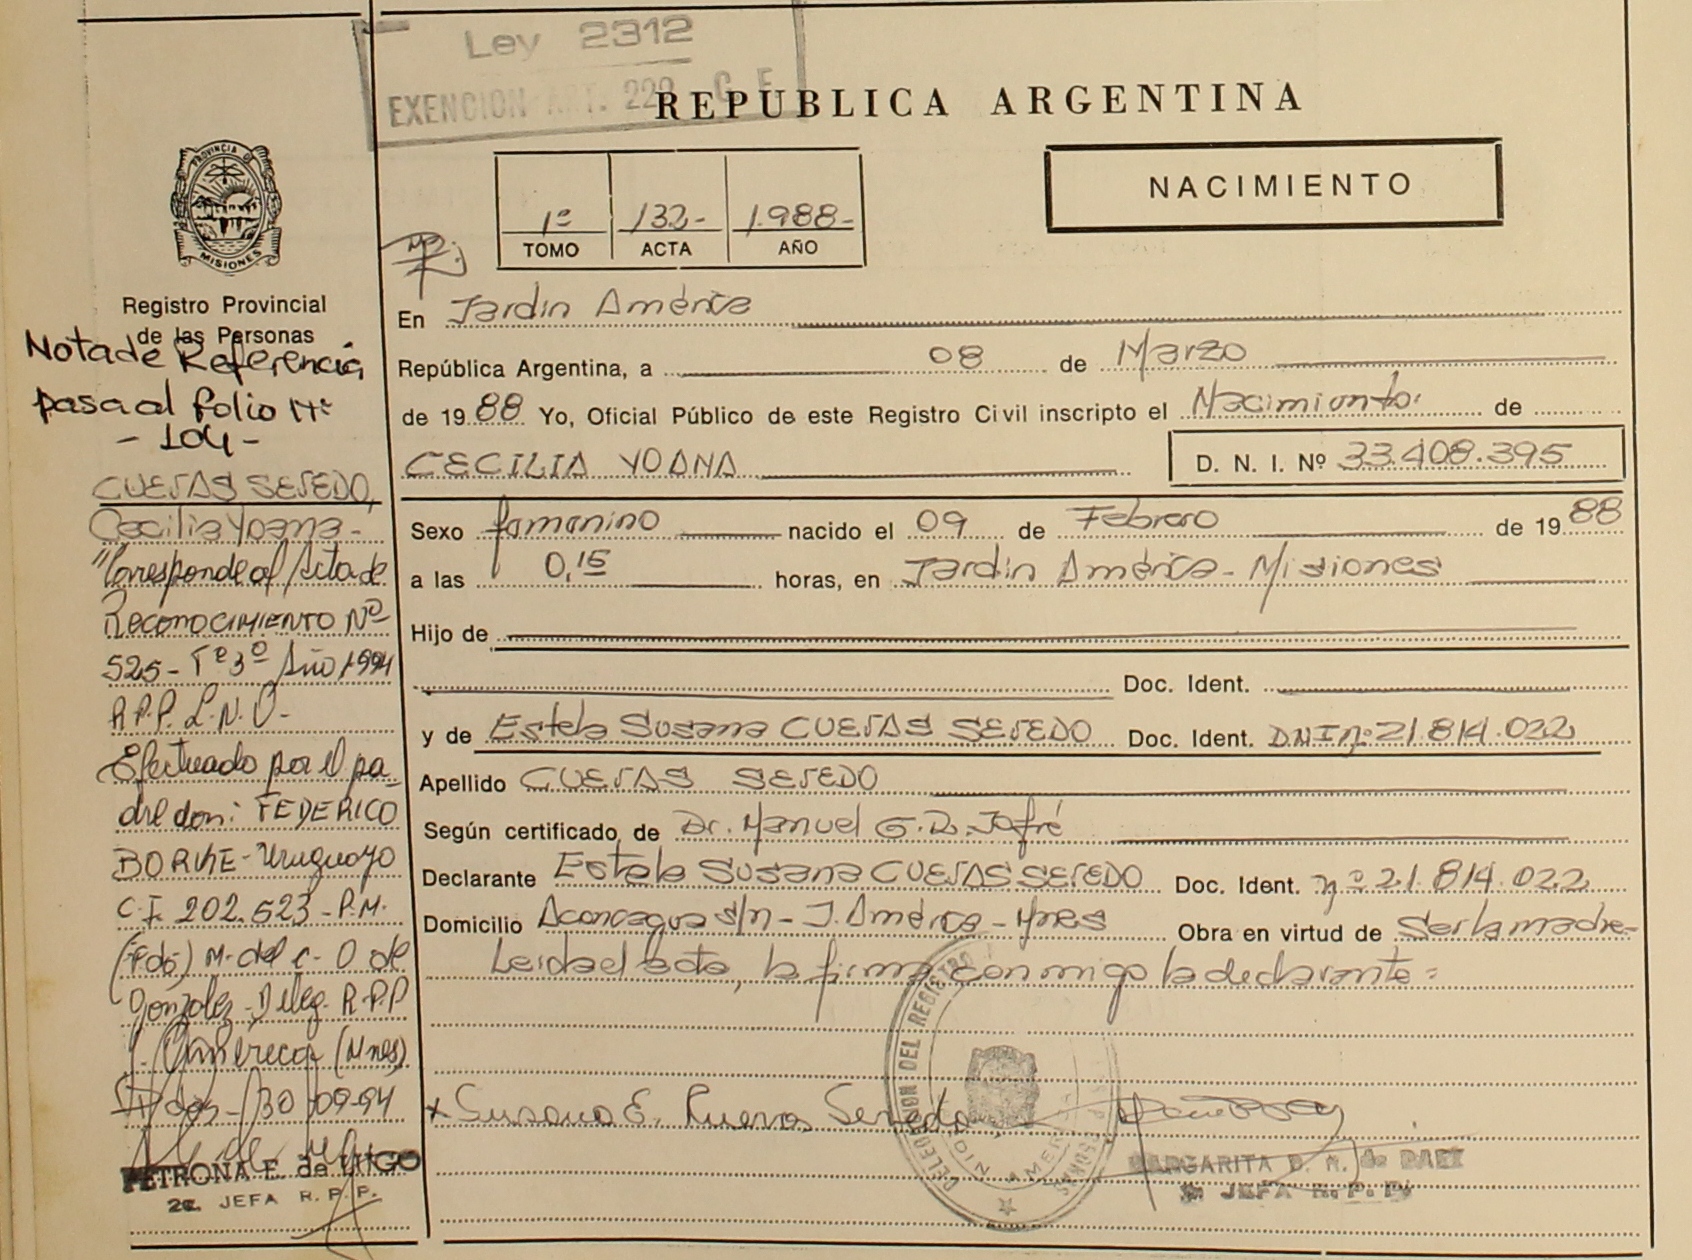 Ley 2312
EXENCION ART. 220 C. F.
REPUBLICA ARGENTINA
NACIMIENTO
1º 132- 1.988-
TOMO ACTA AÑO
PROVINCIA DE
MISIONES
Registro Provincial
de las Personas
Nota de Referencia
pasa al folio Nº
- 104 -
CUEVAS SEVEDO,
Cecilia Yoana-
"Corresponde al Acta de
RECONOCIMIENTO Nº
525- Tº 3º Año 1994
R.P.P. L.N.O-
Efectuado por el pa-
dre don: FEDERICO
BORKE- Uruguayo
C.I. 202.523 - P.M.
(Fdo) M. del C. O de
Gonzalez- Deleg. R.P.P
J. América (Mnes)
30/09-94
PETRONA E. de LUGO
2a. JEFA R. P. P.
En Jardín América
República Argentina, a 08 de Marzo
de 1988 Yo, Oficial Público de este Registro Civil inscripto el Nacimiento. de
CECILIA YOANA D. N. I. Nº 33.408.395
Sexo femenino nacido el 09 de Febrero de 1988
a las 0,15 horas, en Jardín América- Misiones
Hijo de
Doc. Ident.
y de Estela Susana CUEVAS SEVEDO Doc. Ident. DNI nº 21.814.022
Apellido CUEVAS SEVEDO
Según certificado de Dr. Manuel G.D. Jofré
Declarante Estela Susana CUEVAS SEVEDO Doc. Ident. nº 21.814.022
Domicilio Aconcagua s/n- J. América- Mnes Obra en virtud de Ser la madre-
Leída el acta, la firma conmigo la declarante=
x Susana E. Kuevas Sevedo
DELEGACION DEL REGISTRO
JARDIN AMERICA
MARGARITA B. R. de PAEZ
JEFA R. P. P.